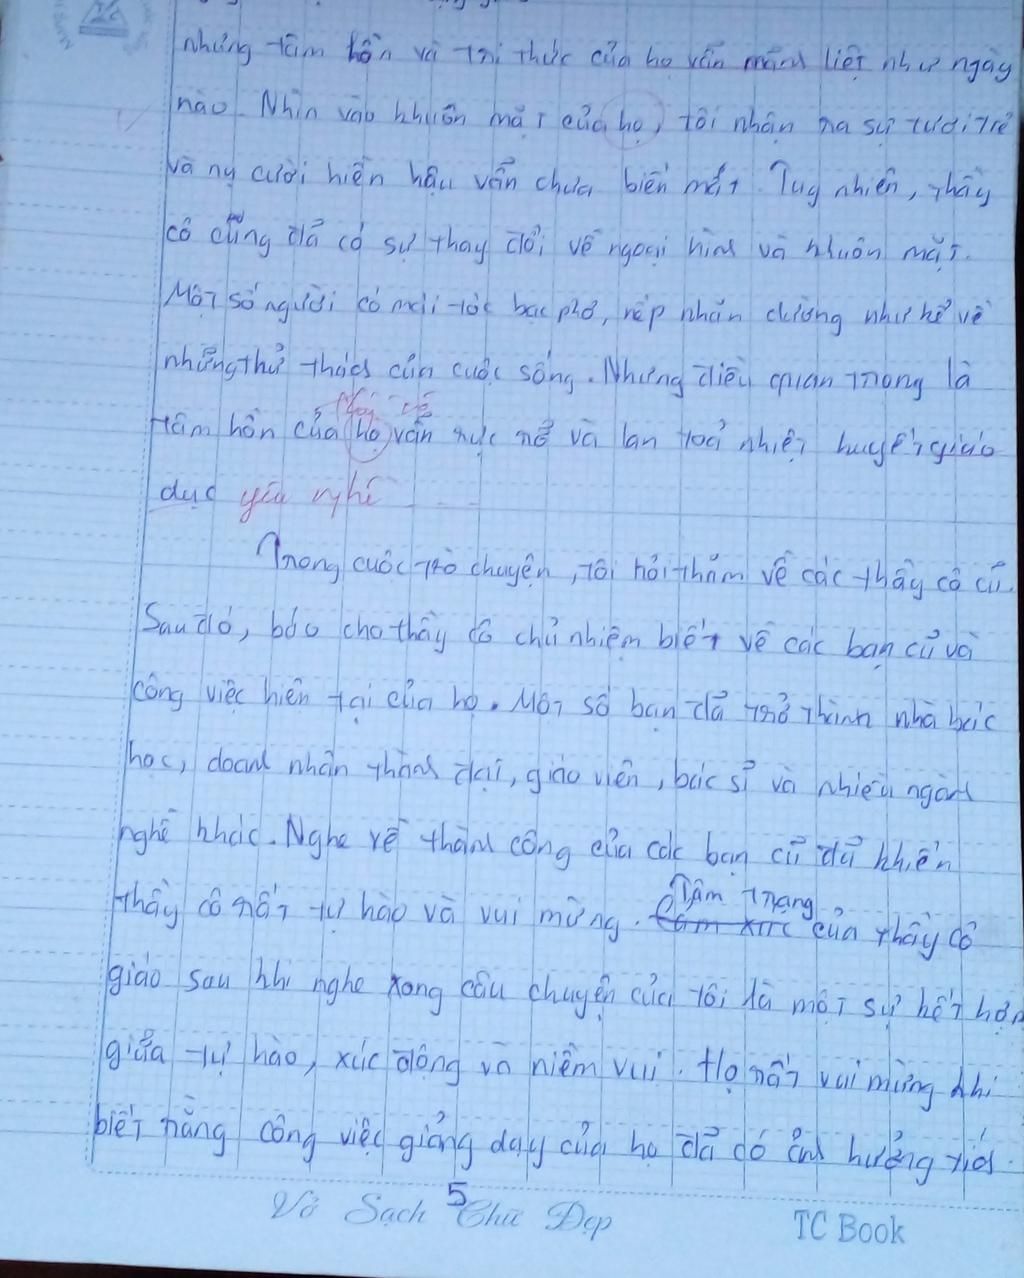 nhưng tâm hồn và tri thức của họ vẫn mãnh liệt như ngày
nào. Nhìn vào khuôn mặt của họ, tôi nhận ra sự tươi trẻ
và nụ cười hiền hậu vẫn chưa biến mất. Tuy nhiên, thầy
cô cũng đã có sự thay đổi về ngoại hình và khuôn mặt.
Một số người có mái tóc bạc phơ, nếp nhăn dường như kể về
những thử thách của cuộc sống. Nhưng điều quan trọng là
tâm hồn của họ vẫn rực rỡ và lan toả nhiệt huyết giáo
dục
Trong cuộc trò chuyện, tôi hỏi thăm về các thầy cô cũ.
Sau đó, báo cho thầy cô chủ nhiệm biết về các bạn cũ và
công việc hiện tại của họ. Một số bạn đã trở thành nhà bác
học, doanh nhân thành đạt, giáo viên, bác sĩ và nhiều ngành
nghề khác. Nghe về thành công của các bạn cũ đã khiến
thầy cô rất tự hào và vui mừng. Tâm trạng của thầy cô
giáo sau khi nghe xong câu chuyện của tôi là một sự kết hợp
giữa tự hào, xúc động và niềm vui. Họ rất vui mừng khi
biết rằng công việc giảng dạy của họ đã có ảnh hưởng tới
5
Vở Sạch Chữ Đẹp
TC Book